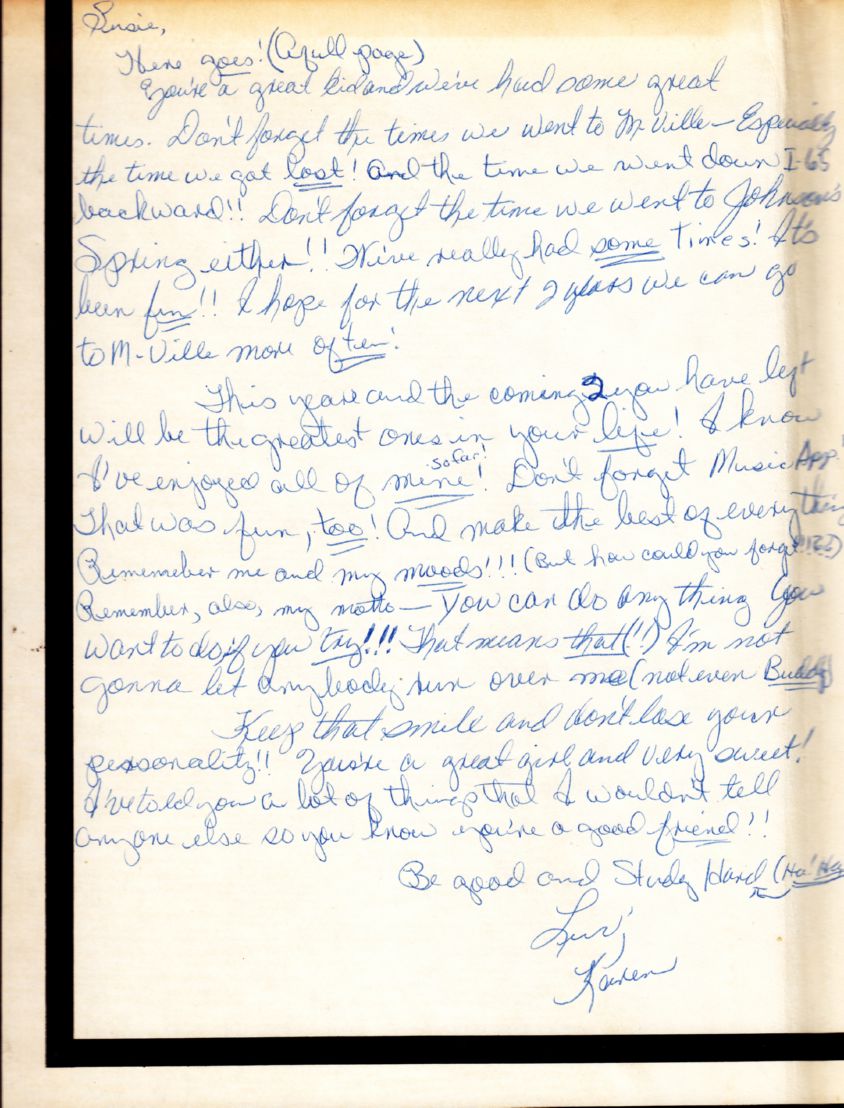 Susie,
Here goes! (A full page)
You're a great kid and we've had some great
times. Don't forget the times we went to M-Ville — Especially
the time we got lost! And the time we went down I-65
backward!! Don't forget the time we went to Johnson's
Spring either!! We've really had some times! It's
been fun!! I hope for the next 2 years we can go
to M-Ville more often!
This year and the coming 2 you have left
will be the greatest ones in your life! I know
so far!
I've enjoyed all of mine! Don't forget Music App!
That was fun, too! And make the best of everything
Rememeber me and my moods!!! (But how could you forget
Remember, also, my motto — You can do any thing you
want to do, if you try!!! That means that(!!) I'm not
gonna let anybody run over me (not even Buddy)
Keep that smile and don't lose your
personality!! You're a great girl and very sweet!
I've told you a lot of things that I wouldn't tell
anyone else so you know you're a good friend!!
Be good and Study Hard (Ha! Ha
Luv,
Karen